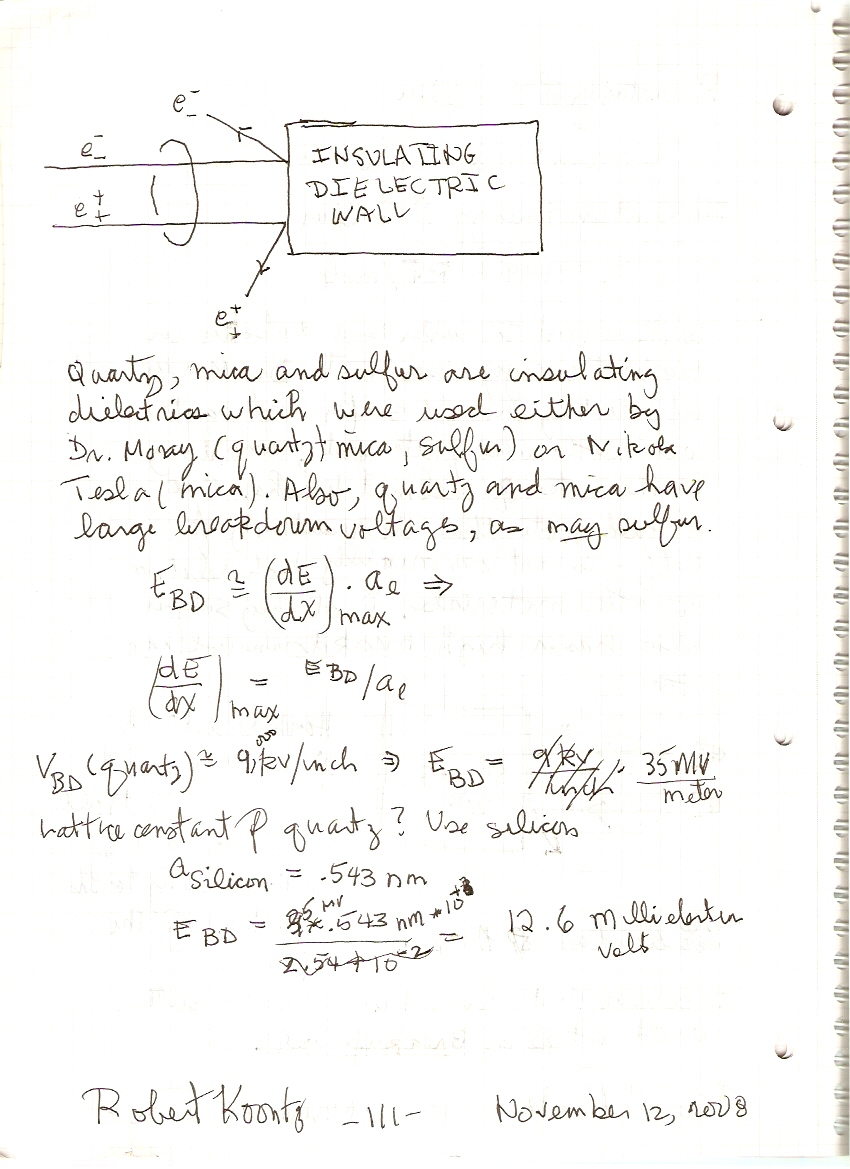 e⁻₋
e⁻₋
e⁺₊
e⁺₊
INSULATING
DIELECTRIC
WALL
Quartz, mica and sulfur are insulating
dielectrics which were used either by
Dr. Moray (quartz + mica, sulfur) or Nikola
Tesla (mica). Also, quartz and mica have
large breakdown voltages, as may sulfur.
E_BD ≅ (dE/dx)_max · a_l ⇒
(dE/dx)_max = E_BD/a_l
V_BD (quartz) ≅ kv/inch ⇒ E_BD = 35 MV/meter
Lattice constant of quartz? Use silicon
a_silicon = .543 nm
E_BD = .543 nm = 12.6 millielectron
volts
Robert Koontz -111- November 12, 2008